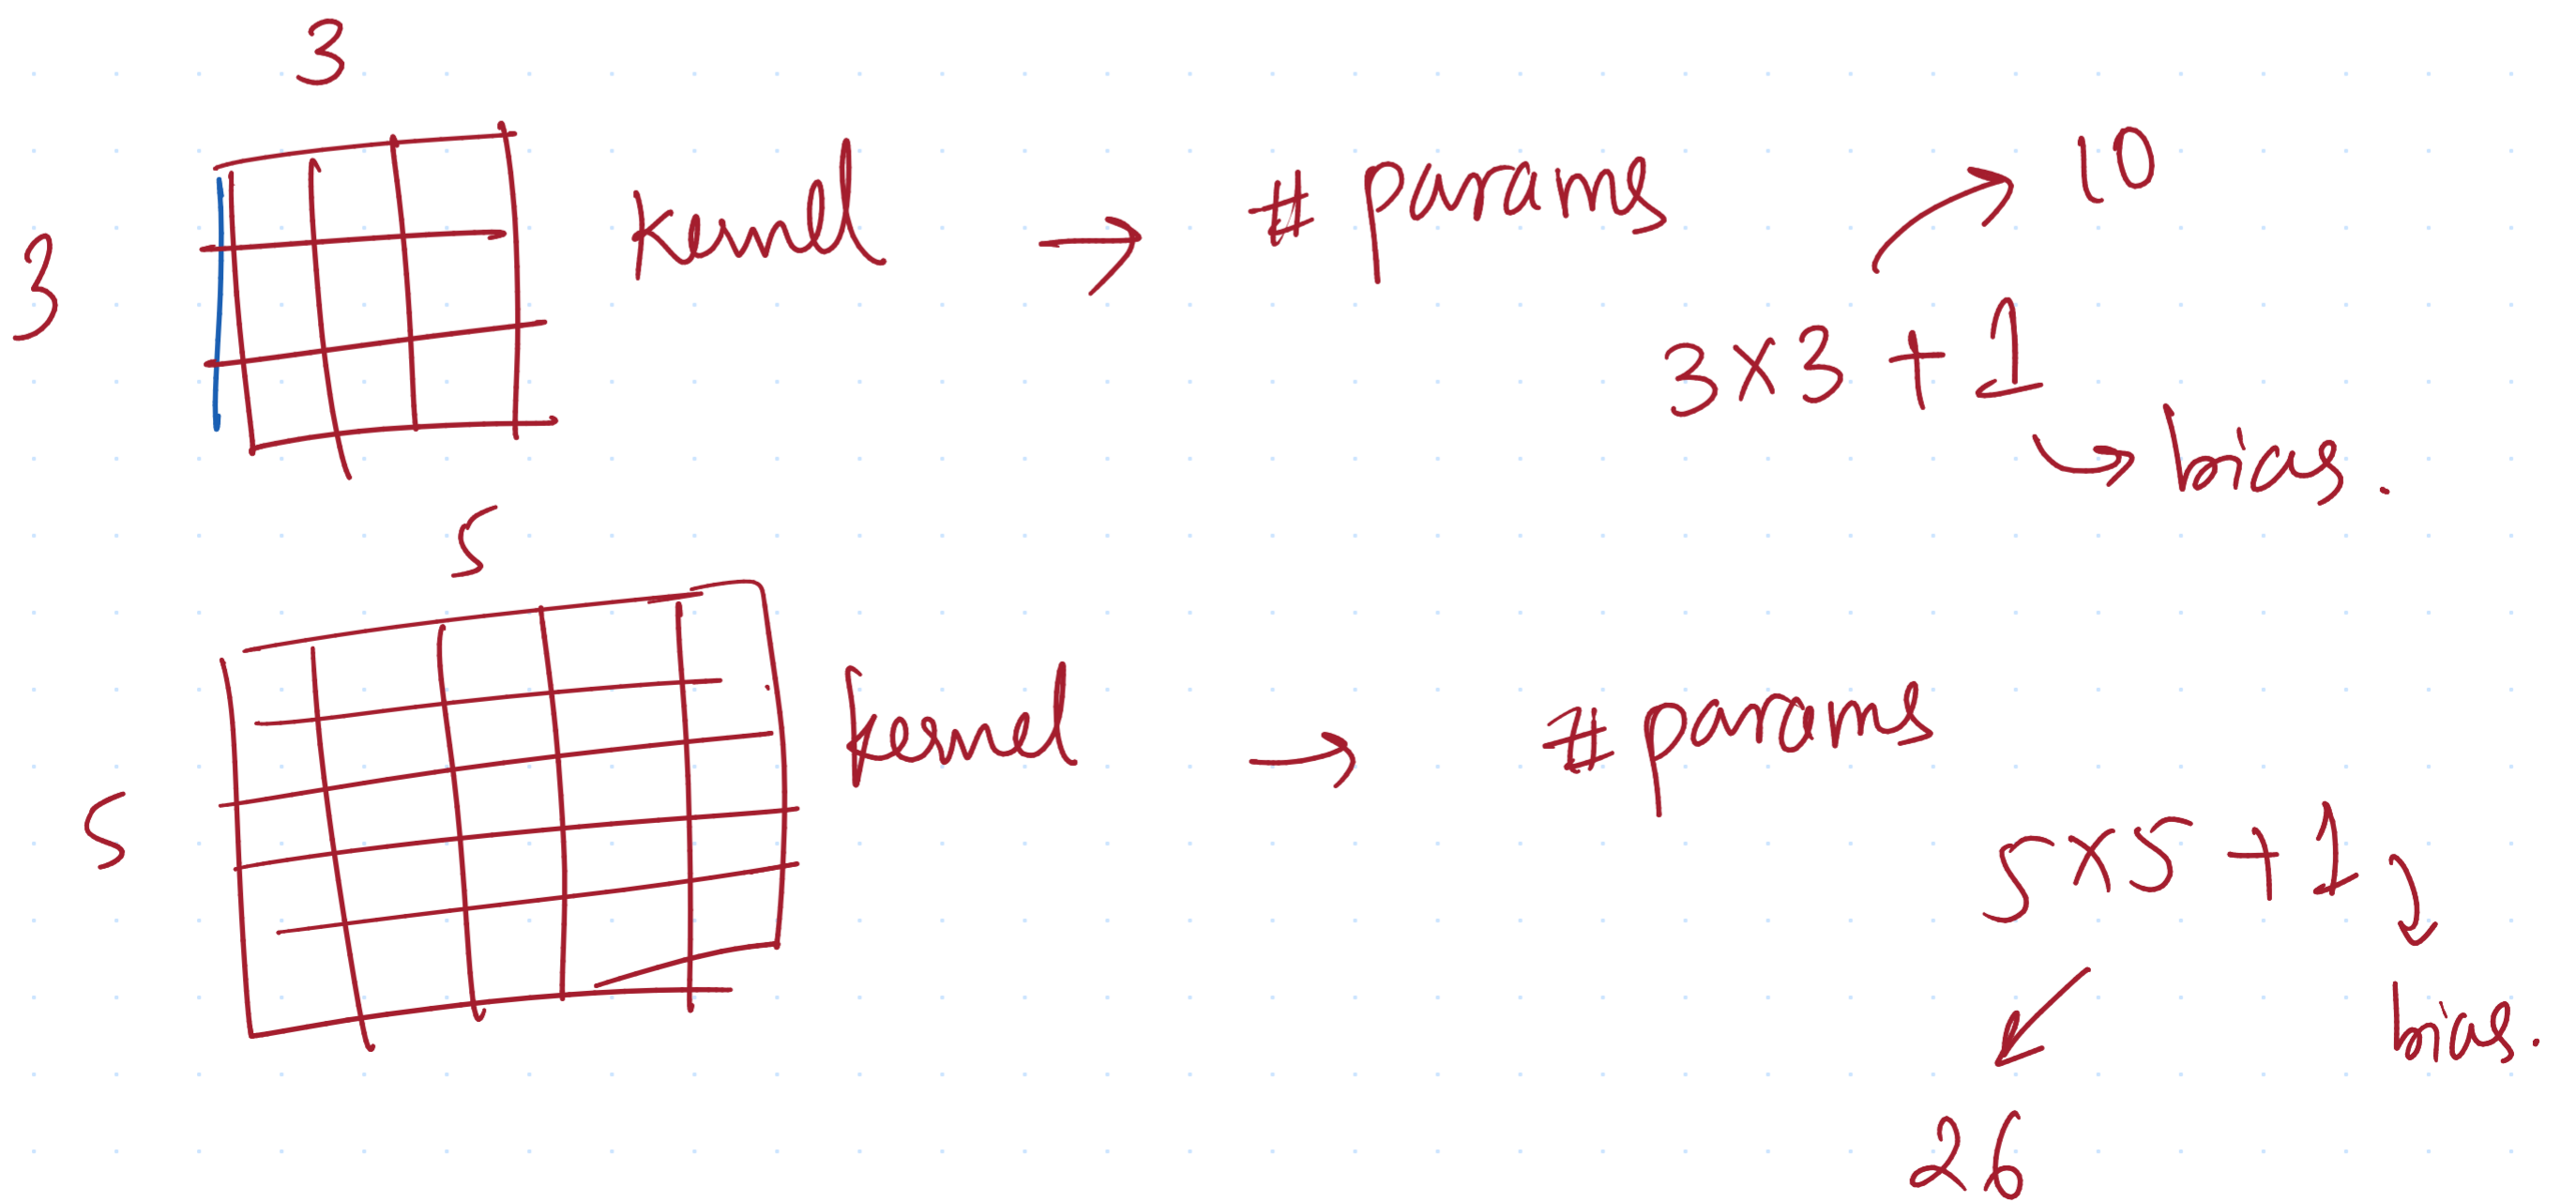 3
3 kernel → # params
10
3×3 + 1
bias.
5
5 kernel → # params
5×5 + 1
bias.
26